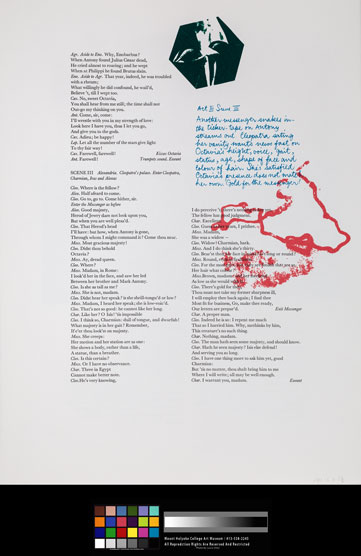 Agr. Aside to Eno. Why, Enobarbus?
When Antony found Julius Cæsar dead,
He cried almost to roaring; and he wept
When at Philippi he found Brutus slain.
Eno. Aside to Agr. That year, indeed, he was troubled
with a rheum;
What willingly he did confound, he wail'd,
Believe 't, till I wept too.
Cæs. No, sweet Octavia,
You shall hear from me still; the time shall not
Out-go my thinking on you.
Ant. Come, sir, come;
I'll wrestle with you in my strength of love:
Look here I have you, thus I let you go,
And give you to the gods.
Cæs. Adieu; be happy!
Lep. Let all the number of the stars give light
To thy fair way!
Cæs. Farewell, farewell! Kisses Octavia
Ant. Farewell! Trumpets sound. Exeunt
SCENE III Alexandria. Cleopatra's palace. Enter Cleopatra,
Charmian, Iras and Alexas
Cle. Where is the fellow?
Alex. Half afeard to come.
Cle. Go to, go to. Come hither, sir.
Enter the Messenger as before
Alex. Good majesty,
Herod of Jewry dare not look upon you,
But when you are well pleas'd.
Cle. That Herod's head
I'll have: but how, when Antony is gone,
Through whom I might command it? Come thou near.
Mess. Most gracious majesty!
Cle. Didst thou behold
Octavia?
Mess. Ay, dread queen.
Cle. Where?
Mess. Madam, in Rome;
I look'd her in the face, and saw her led
Between her brother and Mark Antony.
Cle. Is she as tall as me?
Mess. She is not, madam.
Cle. Didst hear her speak? is she shrill-tongu'd or low?
Mess. Madam, I heard her speak; she is low-voic'd.
Cle. That's not so good: he cannot like her long.
Char. Like her? O Isis! 'tis impossible
Cle. I think so, Charmian: dull of tongue, and dwarfish!
What majesty is in her gait? Remember,
If e'er thou look'st on majesty.
Mess. She creeps:
Her motion and her station are as one:
She shows a body, rather than a life,
A statue, than a breather.
Cle. Is this certain?
Mess. Or I have no observance.
Char. Three in Egypt
Cannot make better note.
Cle. He's very knowing,
Act III Scene III
Another messenger snakes in
the ticker tape on Antony
Cleopatra eating
her vanity wants news fast on
Octavia's height, voice, gait,
status, age, shape of face and
colour of hair. She's satisfied,
Octavia's presence does not match
her own. Gold for the messenger
I do perceive 't: there's nothing in her yet
The fellow has good judgment.
Char. Excellent.
Cle. Guess at her years, I prithee.
Mess. Madam,
She was a widow—
Cle. Widow? Charmian, hark.
Mess. And I do think she's thirty.
Cle. Bear'st thou her face in mind? is't long or round?
Mess. Round, even to faultiness.
Cle. For the most part, too, they are foolish that are so.
Her hair what colour?
Mess. Brown, madam: and her forehead
As low as she would wish it.
Cle. There's gold for thee.
Thou must not take my former sharpness ill,
I will employ thee back again; I find thee
Most fit for business. Go, make thee ready,
Our letters are prepar'd. Exit Messenger
Char. A proper man.
Cle. Indeed he is so: I repent me much
That so I harried him. Why, methinks by him,
This creature's no such thing.
Char. Nothing, madam.
Cle. The man hath seen some majesty, and should know.
Char. Hath he seen majesty? Isis else defend!
And serving you so long.
Cle. I have one thing more to ask him yet, good
Charmian:
But 'tis no matter, thou shalt bring him to me
Where I will write; all may be well enough.
Char. I warrant you, madam. Exeunt
Mount Holyoke College Art Museum | 413-538-2245
All Reproduction Rights Are Reserved And Restricted